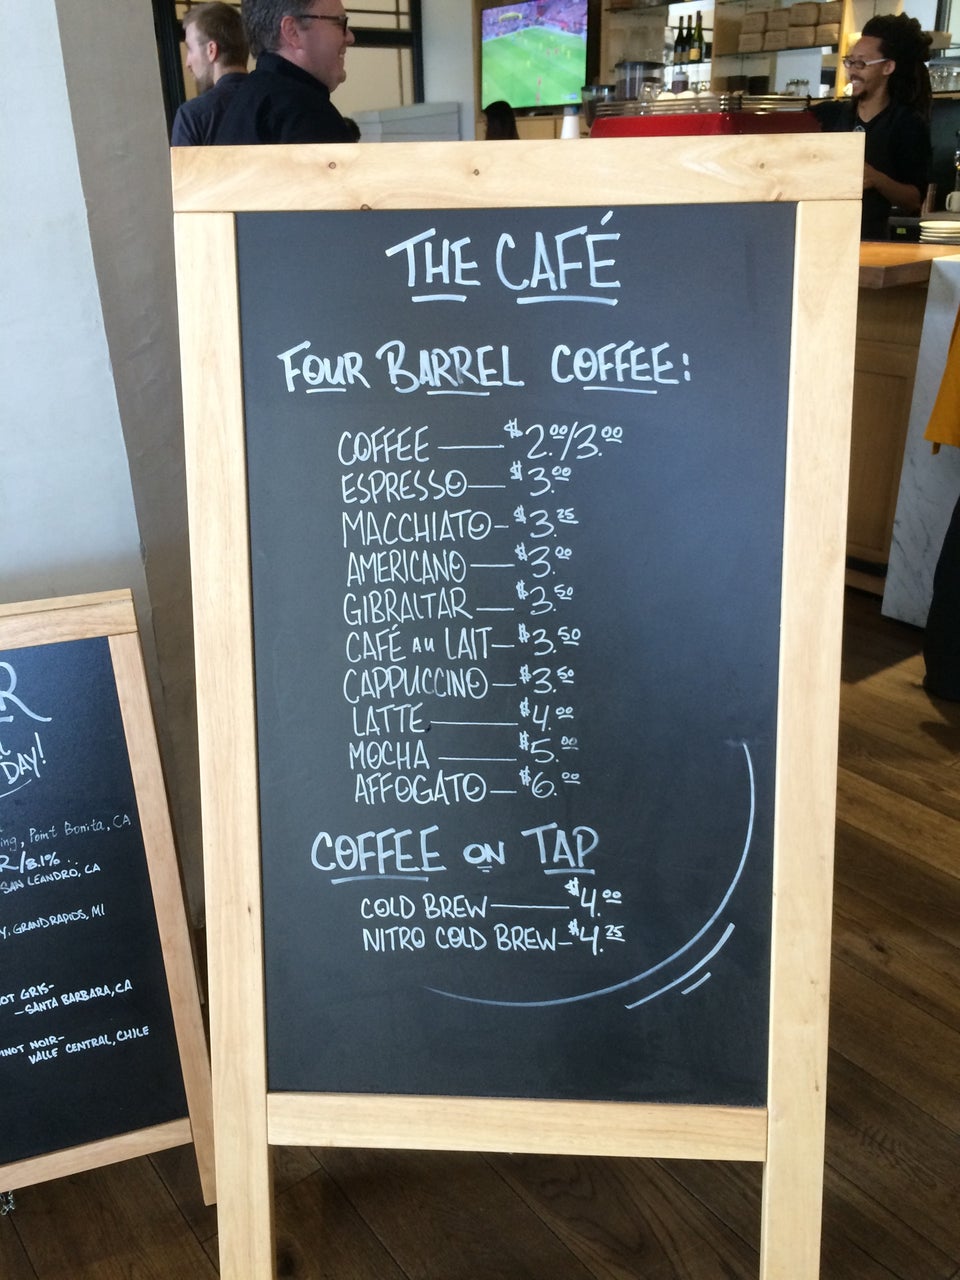 THE CAFÉ
FOUR BARREL COFFEE:
COFFEE — $2.00/3.00
ESPRESSO — $3.00
MACCHIATO - $3.25
AMERICANO — $3.00
GIBRALTAR — $3.50
CAFÉ AU LAIT - $3.50
CAPPUCCINO — $3.50
LATTE — $4.00
MOCHA — $5.00
AFFOGATO — $6.00
COFFEE ON TAP
COLD BREW — $4.00
NITRO COLD BREW - $4.25
R
DAY!
ing, Point Bonita, CA
R/8.1%
SAN LEANDRO, CA
Y, GRAND RAPIDS, MI
OT GRIS-
-SANTA BARBARA, CA
INOT NOIR-
VALLE CENTRAL, CHILE